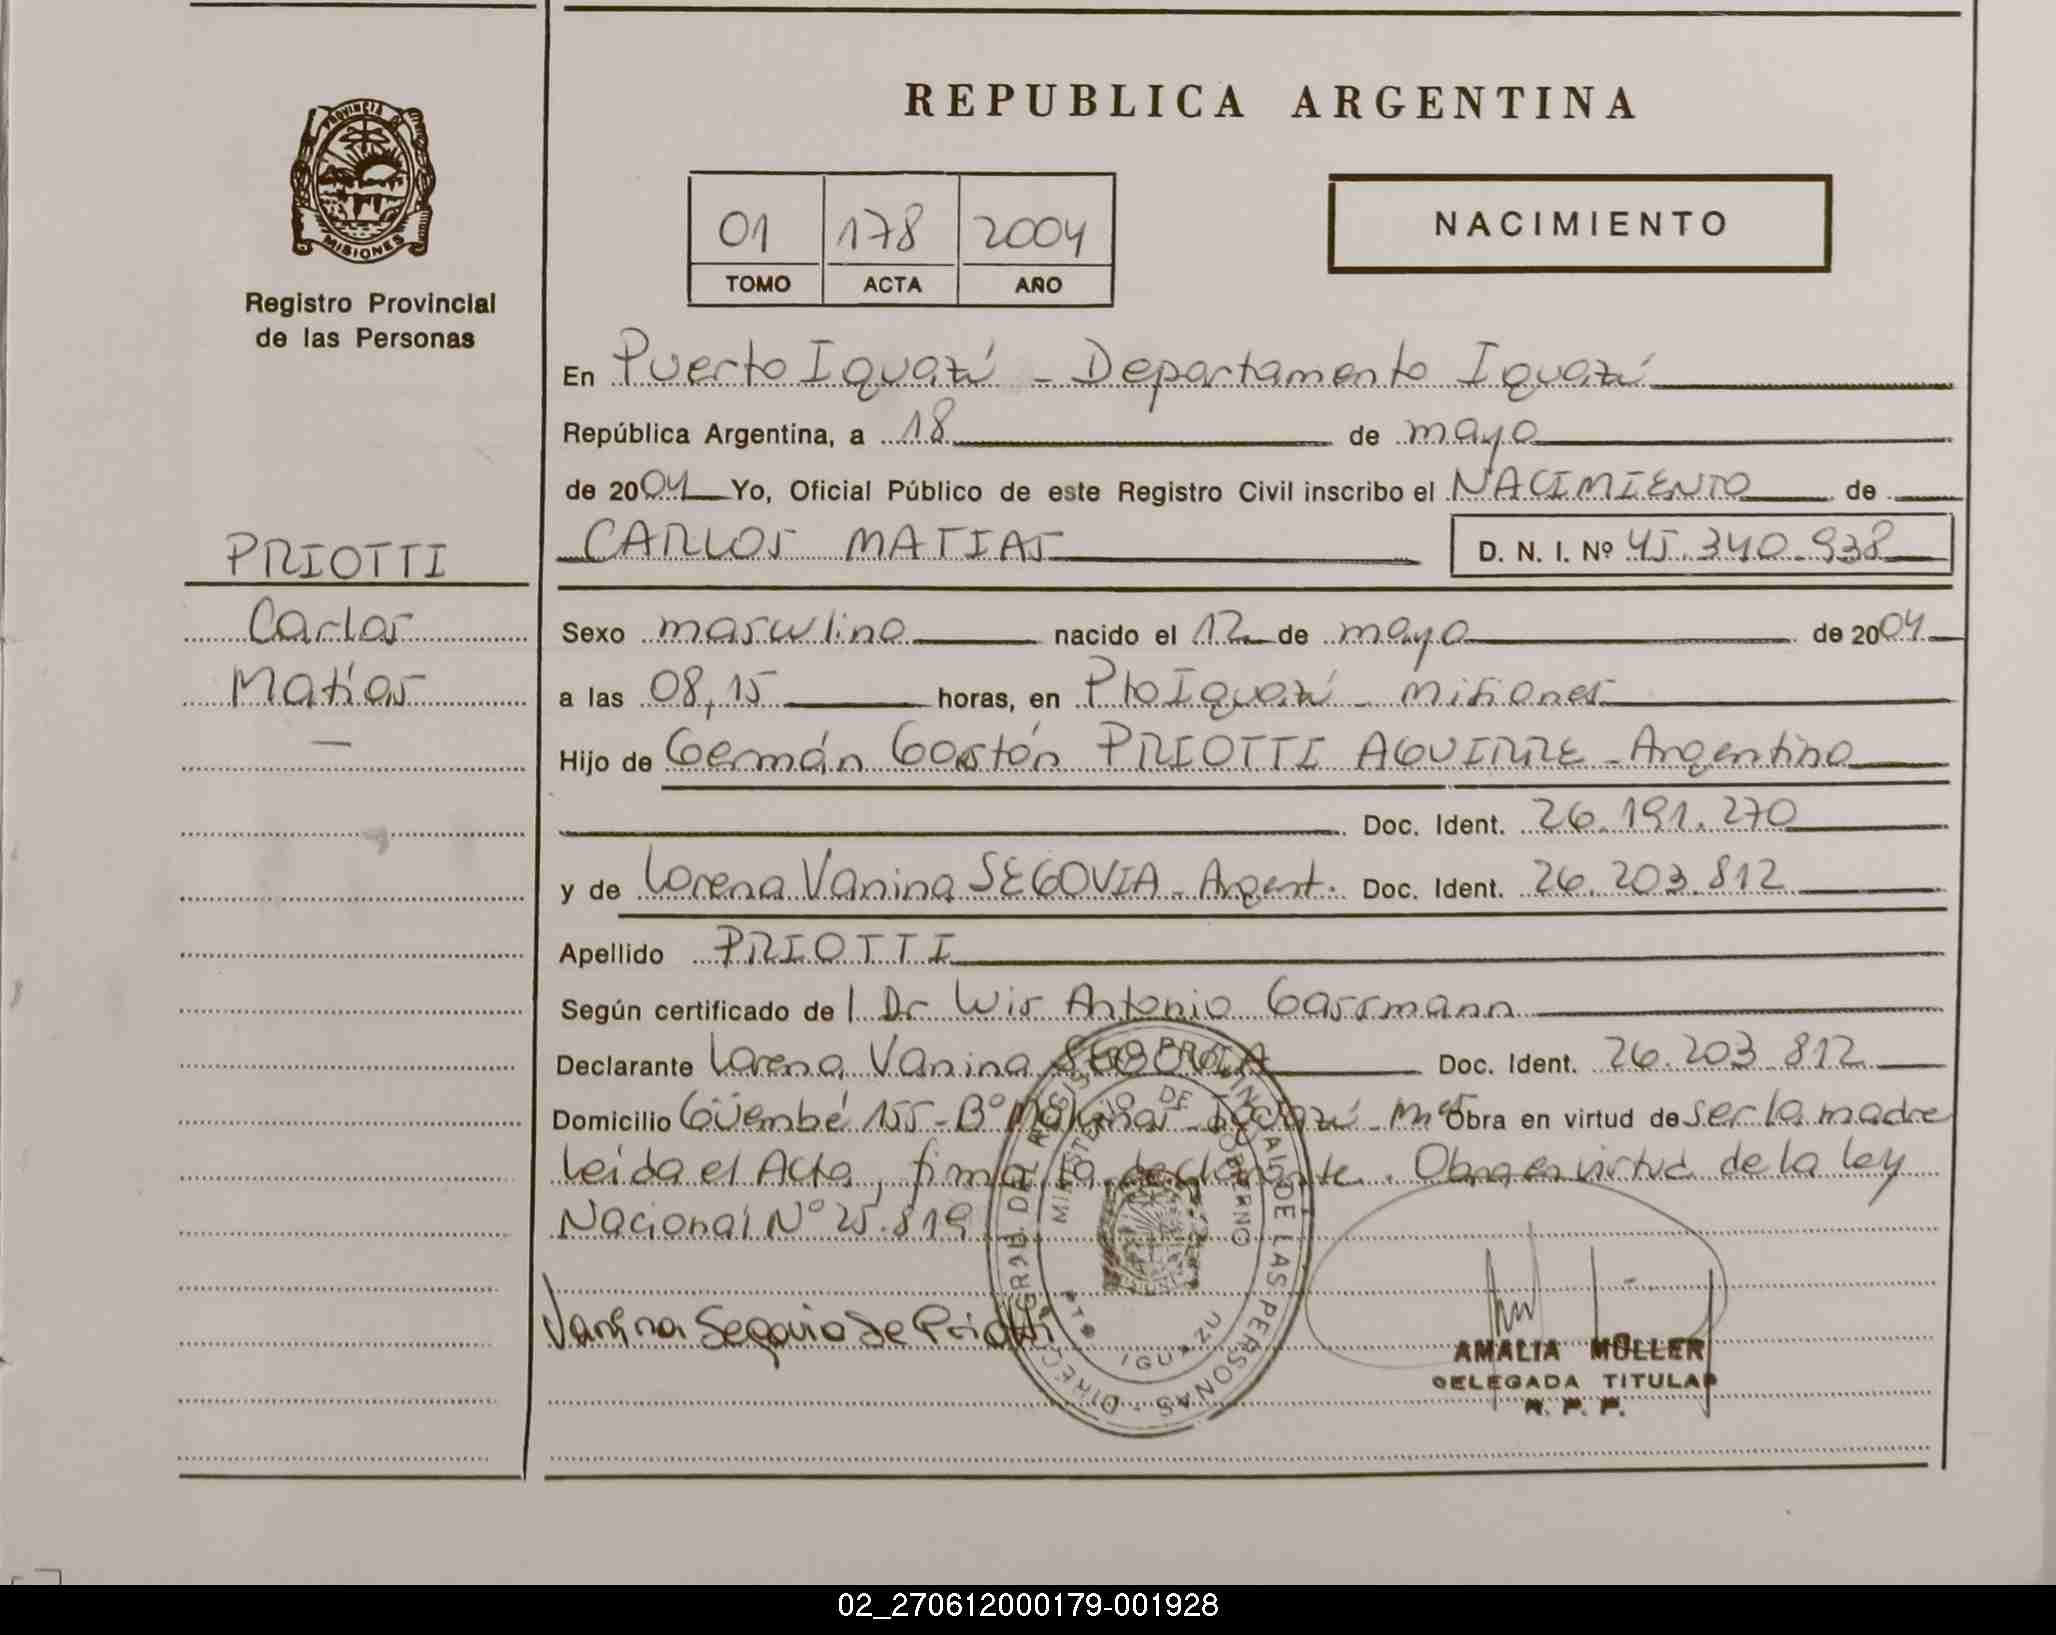 REPUBLICA ARGENTINA
PROVINCIA DE
MISIONES
Registro Provincial
de las Personas
01 178 2004
TOMO ACTA AÑO
NACIMIENTO
En Puerto Iguazú - Departamento Iguazú
República Argentina, a 18 de mayo
de 2004 Yo, Oficial Público de este Registro Civil inscribo el NACIMIENTO de
PRIOTTI
Carlos
Matías
CARLOS MATIAS D. N. I. Nº 45.340.938
Sexo masculino nacido el 12 de mayo de 2004
a las 08,15 horas, en Pto Iguazú - Misiones
Hijo de Germán Gastón PRIOTTI AGUIRRE - Argentino
Doc. Ident. 26.191.270
y de Lorena Vanina SEGOVIA - Argent. Doc. Ident. 26.203.812
Apellido PRIOTTI
Según certificado de l Dr Luis Antonio Gassmann
Declarante Lorena Vanina SEGOVIA Doc. Ident. 26.203.812
Domicilio Güembé 155 - Bº Malvinas - Iguazú - Mnes Obra en virtud de ser la madre
Leida el Acta, firma la declarante. Obra en virtud de la ley
Nacional Nº 25.819
Vanina Segovia de Priotti
DIRECC. GRAL. DEL REGISTRO PROVINCIAL DE LAS PERSONAS
MINISTERIO DE GOBIERNO
PTO IGUAZU
AMALIA MÜLLER
DELEGADA TITULAR
R. P. P.
02_270612000179-001928